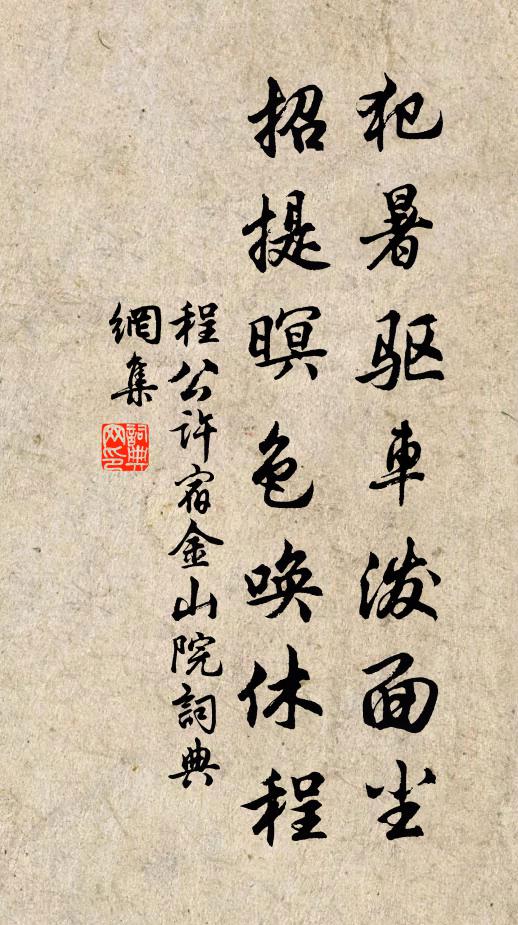 犯暑驱車泼面尘
招提暝色唤休程
程公许宿金山院詞典
網集
詞典网印